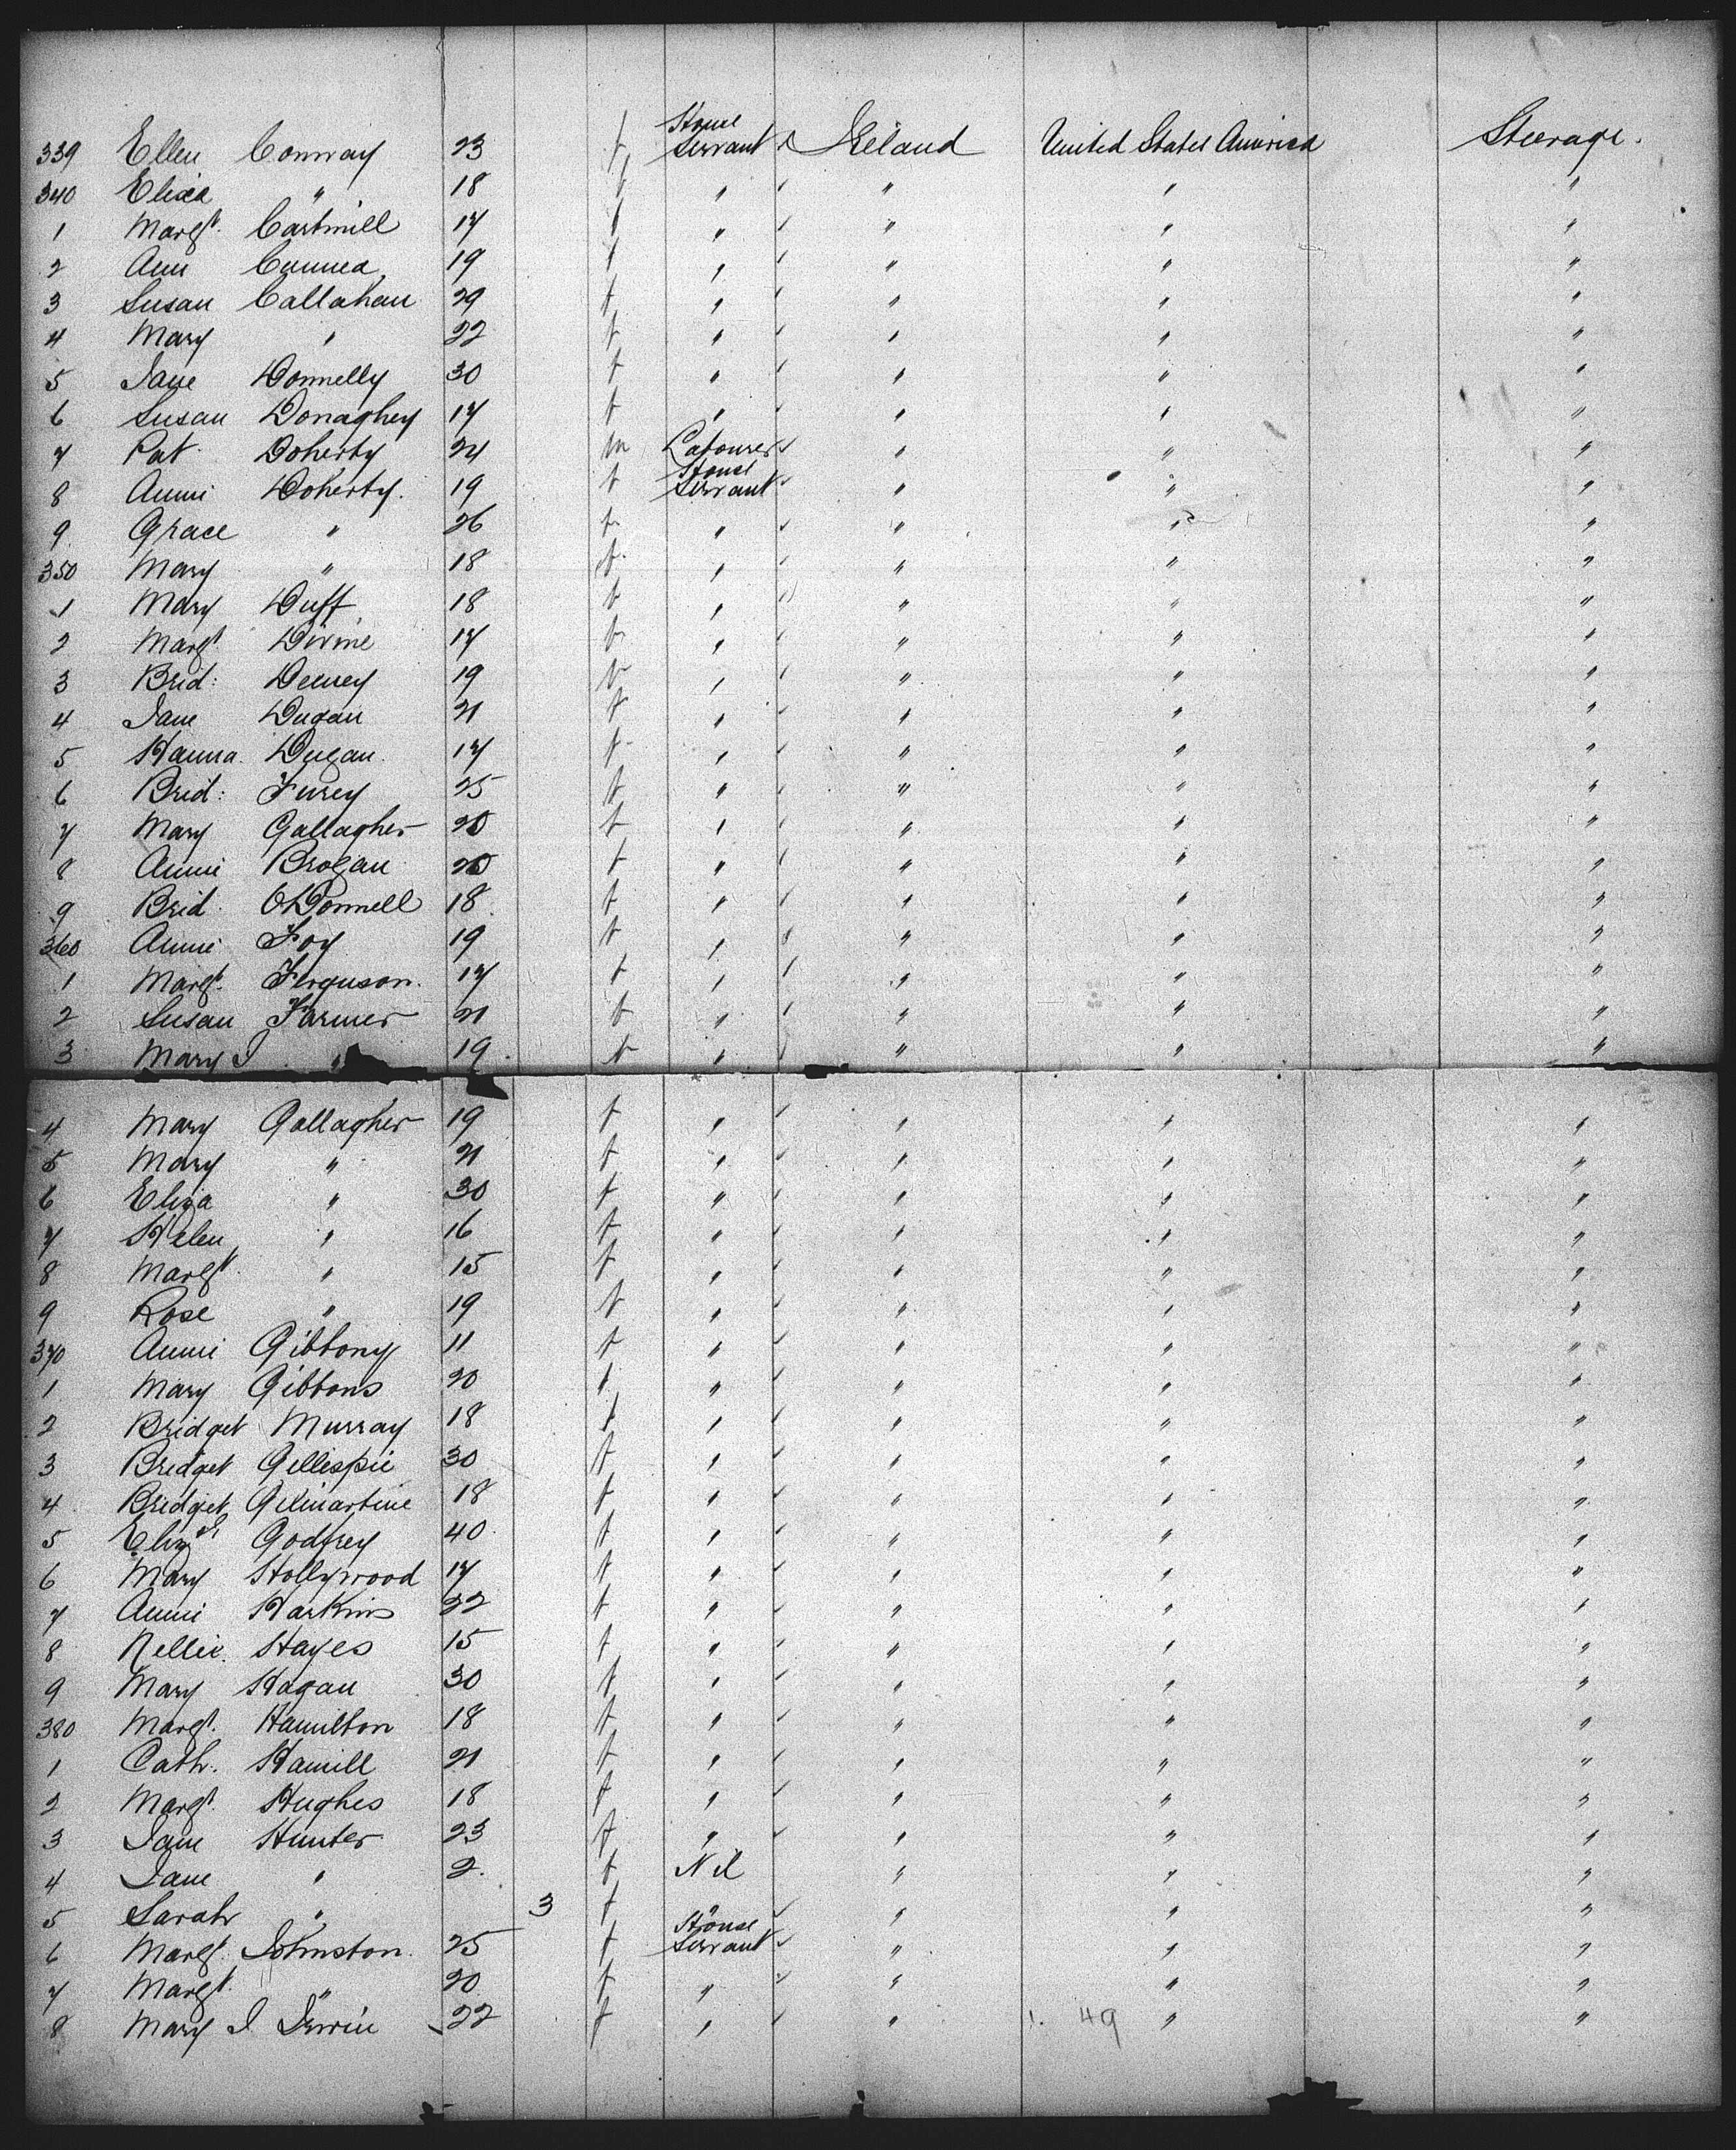 339 Ellen Conway 23 f House Servant Ireland United States America Steerage.
340 Eliza " 18 f " " " "
1 Margt. Cartmill 17 f " " " "
2 Ann 19 f " " " "
3 Susan Callahan 29 f " " " "
4 Mary " 22 f " " " "
5 Jane Donnelly 30 f " " " "
6 Susan Donaghey 17 f " " " "
7 Pat Doherty 24 m Labourer " " "
8 Annie Doherty. 19 f House Servant " " "
9 Grace " 26 f " " " "
350 Mary " 18 f " " " "
1 Mary Duff 18 f " " " "
2 Margt. Divine 17 f " " " "
3 Brid: Deeney 19 f " " " "
4 Jane Dugan 21 f " " " "
5 Hanna Dugan 17 f " " " "
6 Brid: Furey 25 f " " " "
7 Mary Gallagher 20 f " " " "
8 Annie Brogan 20 f " " " "
9 Brid. O'Donnell 18 f " " " "
360 Annie Foy 19 f " " " "
1 Margt. Ferguson. 17 f " " " "
2 Susan Farmer 21 f " " " "
3 Mary J " 19 f " " " "
4 Mary Gallagher 19 f " " " "
5 Mary " 21 f " " " "
6 Eliza " 30 f " " " "
7 Helen " 16 f " " " "
8 Margt. " 15 f " " " "
9 Rose " 19 f " " " "
370 Annie Gibbony 11 f " " " "
1 Mary Gibbons 20 f " " " "
2 Bridget Murray 18 f " " " "
3 Bridget Gillespie 30 f " " " "
4 Bridget Gilmartine 18 f " " " "
5 Elizth Godfrey 40 f " " " "
6 Mary Hollywood 17 f " " " "
7 Annie Harkins 22 f " " " "
8 Nellie Hayes 15 f " " " "
9 Mary Hagan 30 f " " " "
380 Margt. Hamilton 18 f " " " "
1 Cath. Hamill 21 f " " " "
2 Margt. Hughes 18 f " " " "
3 Jane Hunter 23 f " " " "
4 Jane " 2. f Nil " " "
5 Sarah " 3 f " " " "
6 Margt. Johnston. 25 f House Servant " " "
7 Margt. " 20 f " " " "
8 Mary J Irwin 22 f " " 49 " "